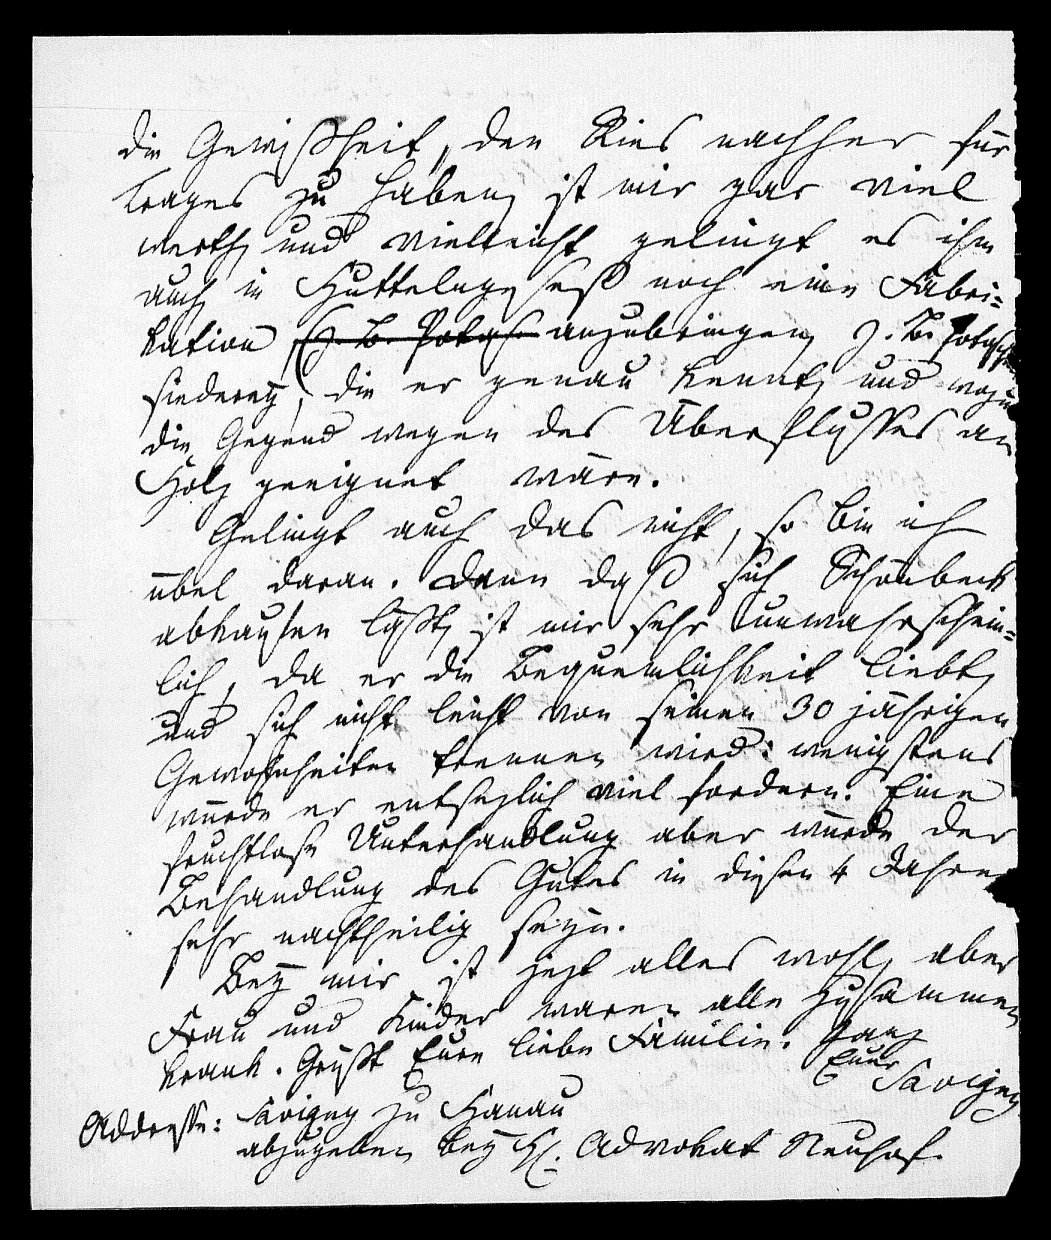 die Gewißheit, den Ries nachher für
Trages zu haben, ist mir gar viel
werth, und vielleicht gelingt es ihm
auch, in Huttelngeseß noch eine Fabri-
kation (z. B. Potasch anzubringen, z. B. Potasch
siederey, die er genau kennt, und wozu
die Gegend wegen des Überflusses an
Holz geeignet wäre.
Gelingt auch das nicht, so bin ich
übel daran. Denn daß sich Schönbeck
abkaufen läßt, ist mir sehr unwahrschein-
lich, da er die Bequemlichkeit liebt,
und sich nicht leicht von seinen 30 jährigen
Gewohnheiten trennen wird: wenigstens
würde er entsezlich viel fordern. Eine
fruchtlose Unterhandlung aber würde der
Behandlung des Gutes in diesen 4 Jahren
sehr nachtheilig seyn.
Bey mir ist jezt alles wohl, aber
Frau und Kinder waren alle zusammen
krank. Grüßt Eure liebe Familie. Ganz
Euer Savigny
Addresse: Savigny zu Hanau
abzugeben bey H. Advokat Neuhof.